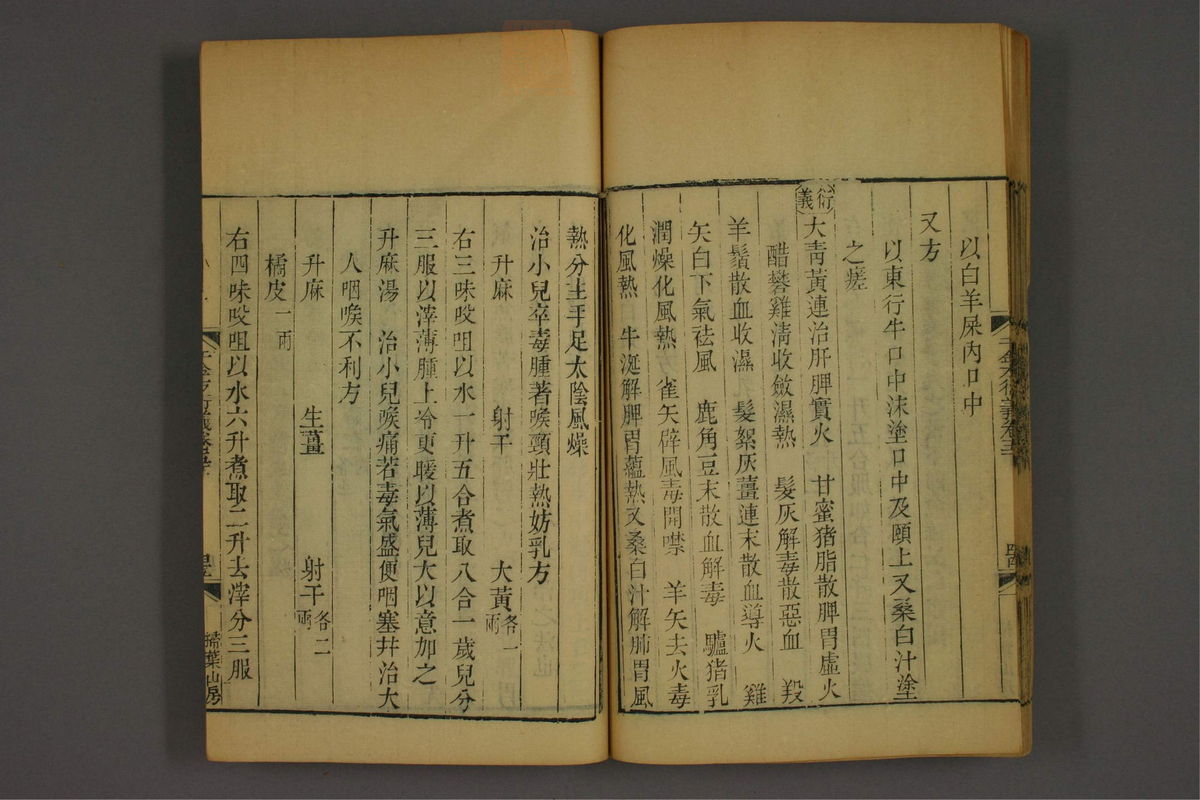 以白羊屎內口中
又方
以東行牛口中沫塗口中及頤上又桑白汁塗
之瘥
衍義 大靑黃連治肝脾實火 甘蜜猪脂散脾胃虛火
醋礬雞淸收斂濕熱 髮灰解毒散惡血 羖
羊鬚散血收濕 髮絮灰薑連末散血導火 雞
矢白下氣祛風 鹿角豆末散血解毒 驢猪乳
潤燥化風熱 雀矢辟風毒開噤 羊矢去火毒
化風熱 牛涎解脾胃蘊熱又桑白汁解肺胃風
熱分主手足太陰風燥
治小兒卒毒腫著喉頸壯熱妨乳方
升麻 射干 大黃各一兩
右三味㕮咀以水一升五合煮取八合一歲兒分
三服以滓薄腫上冷更暖以薄兒大以意加之
升麻湯 治小兒喉痛若毒氣盛便咽塞幷治大
人咽喉不利方
升麻 生薑 射干各二兩
橘皮一兩
右四味㕮咀以水六升煮取二升去滓分三服
掃葉山房